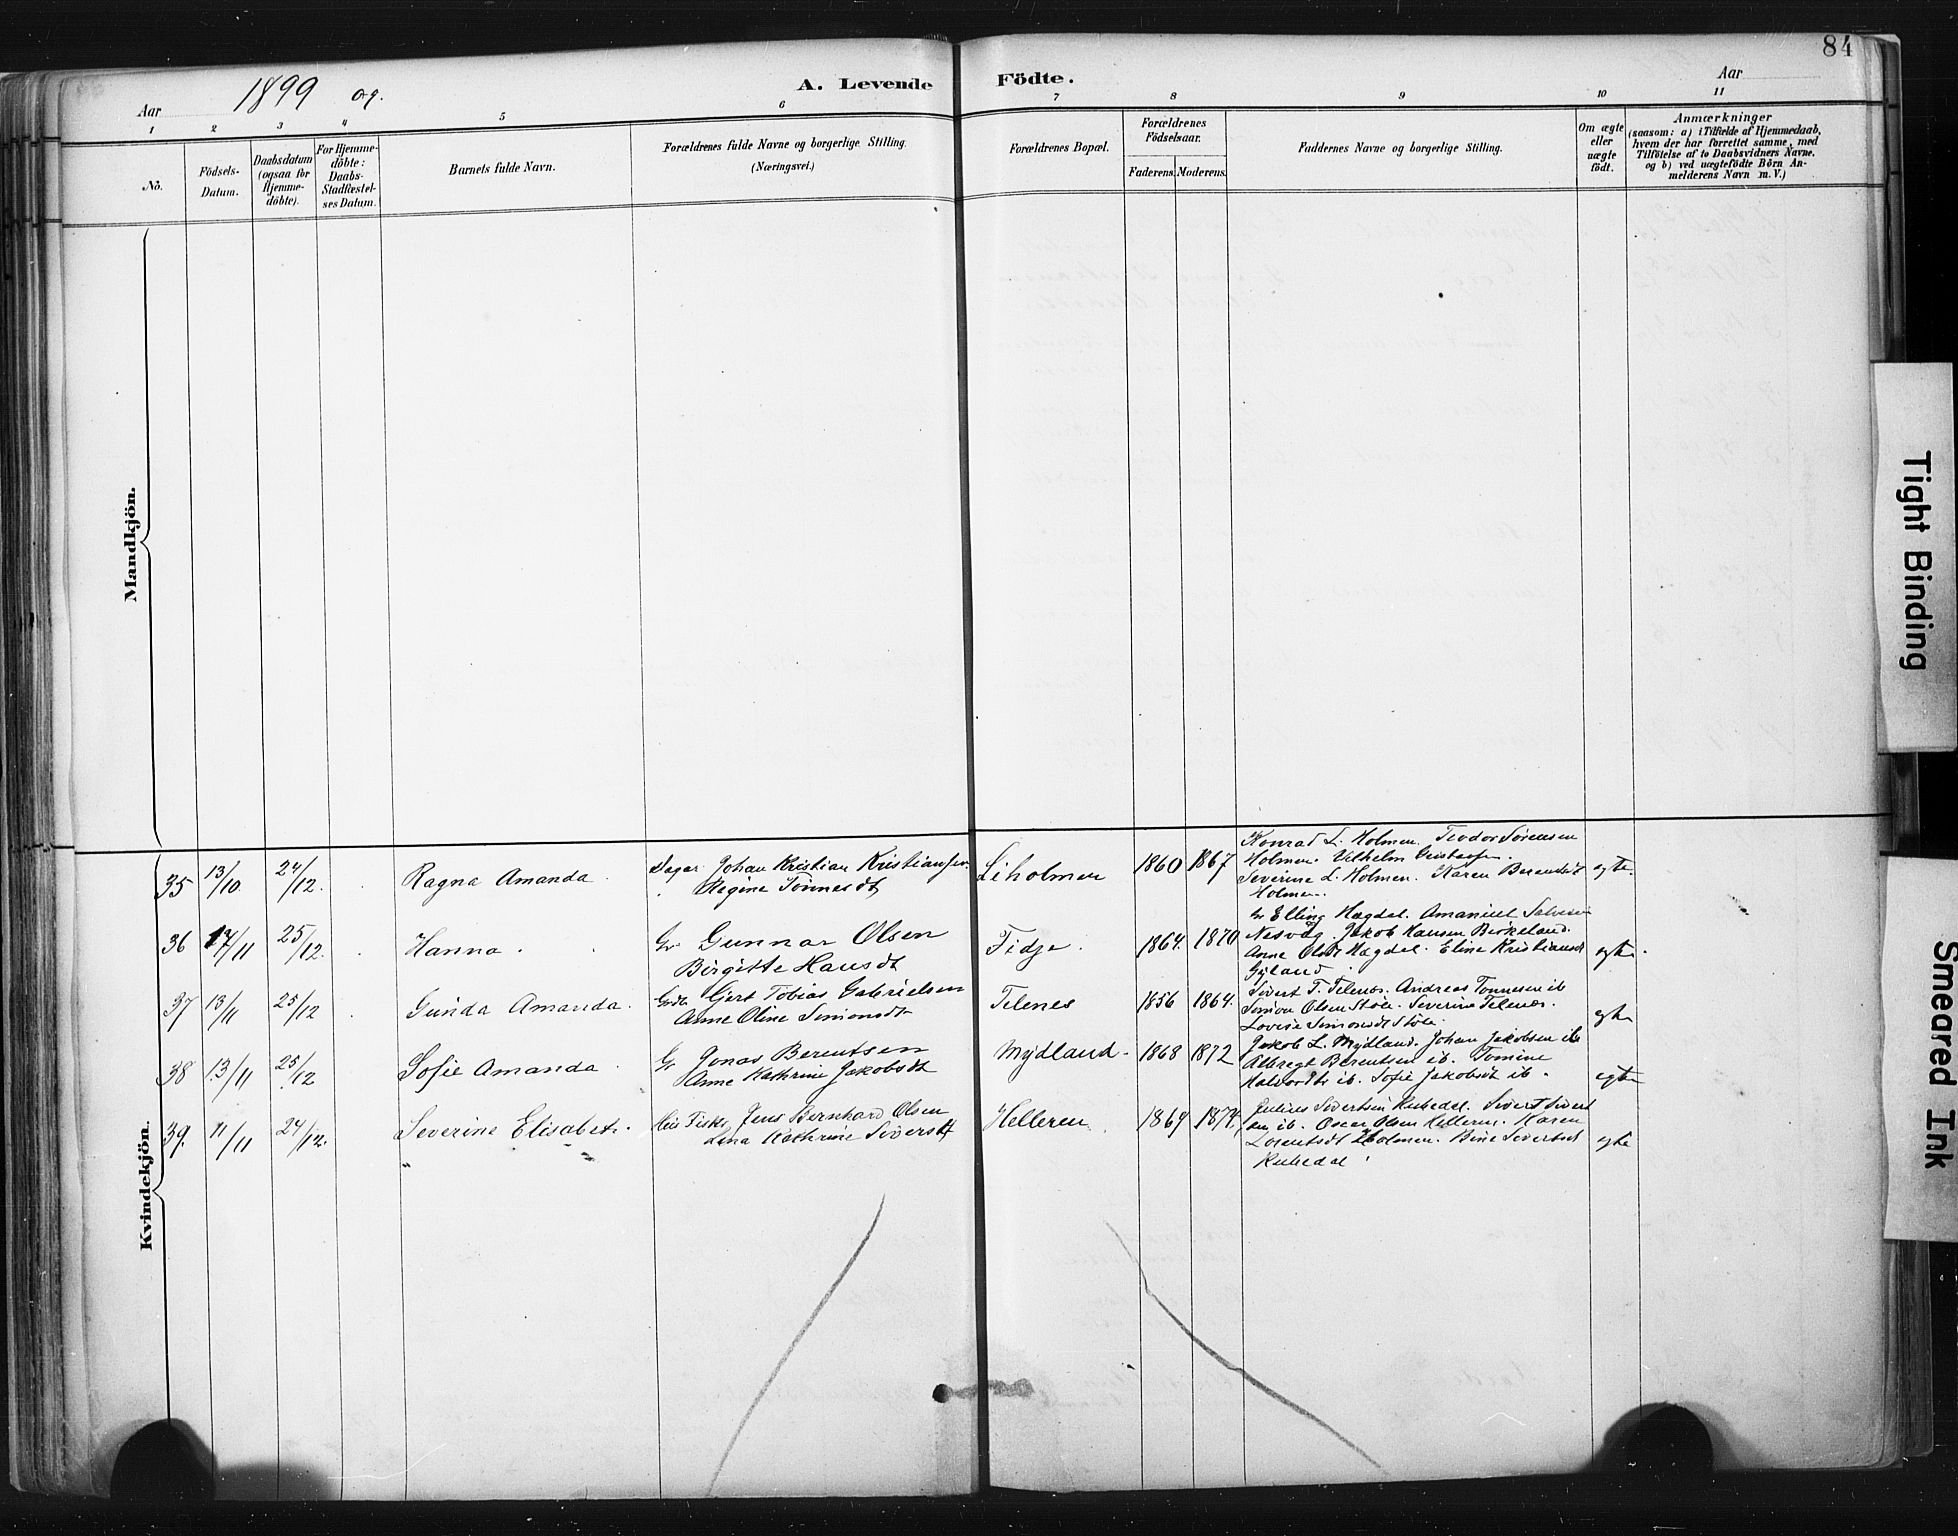 84
Aar 1899 og. A. Levende Födte. Aar
1 2 3 4 5 6 7 8 9 10 11
No.
Födsels-
Datum.
Daabsdatum
(ogsaa for
Hjemme-
döbte).
For Hjemme-
döbte:
Daabs-
Stadfæstel-
ses Datum.
Barnets fulde Navn.
Forældrenes fulde Navne og borgerlige Stilling.
(Næringsvei.)
Forældrenes Bopæl.
Forældrenes
Födselsaar.
Faderens. Moderens.
Faddernes Navne og borgerlige Stilling.
Om ægte
eller
uægte
födt.
Anmærkninger
(saasom: a) i Tilfælde af Hjemmedaab,
hvem der har forrettet samme, med
Tilföielse af to Daabsvidners Navne,
og b) ved uægtefödte Börn An-
melderens Navn m. V.)
Mandkjön.
Kvindekjön.
35 13/10 24/12. Ragna Amanda
Dagar Johan Kristian Kristiansen
Regine Tönnesdt
Liholmen 1860 1867
Konrad L. Holmen. Teodor Sörensen
Holmen. Vilhelm Gustavsen.
Severine L. Holmen. Karen Berentsdt
Holmen.
egte.
36 17/11 25/12. Hanna.
Gr. Gunnar Olsen
Birgitte Hansdt
Fidje. 1864. 1870
Gr Elling Hægdal. Amanuel Salvesen
Nesvåg. Jakob Hansen Birkeland.
Anne Olsdt Hægdal. Eline Kristiansdt
Gyland.
egte.
37 13/11 25/12 Gunda Amanda.
Grdb Gjert Tobias Gabrielsen
Anne Oline Simonsdt
Telenes 1856 1864.
Sivert T. Telenes. Andreas Tonnesen ib
Simon Olsen Stöle. Severine Telenes.
Lovise Simonsdt Stöle.
egte
38 13/11 25/12 Sofie Amanda.
Gr Jonas Berentsen
Anne Kathrine Jakobsdt
Mydland. 1868 1872
Jakob L. Mydland. Johan Jakobsen ib
Albregt Berentsen ib. Tomine
Halvordtr ib. Sofie Jakobsdt ib.
egte
39. 11/11 24/12. Severine Elisabet.
Hus Fisker Jens Bernhard Olsen
Lina Kathrine Siversdt
Helleren 1864 1874,
Julius Sivertsen Rekedal. Sivert Sivert
sen ib. Oscar Olsen Helleren. Karen
Lorentsdt Holmen. Bine Sivertsdt
Rekedal.
egte
Tight Binding
Smeared Ink